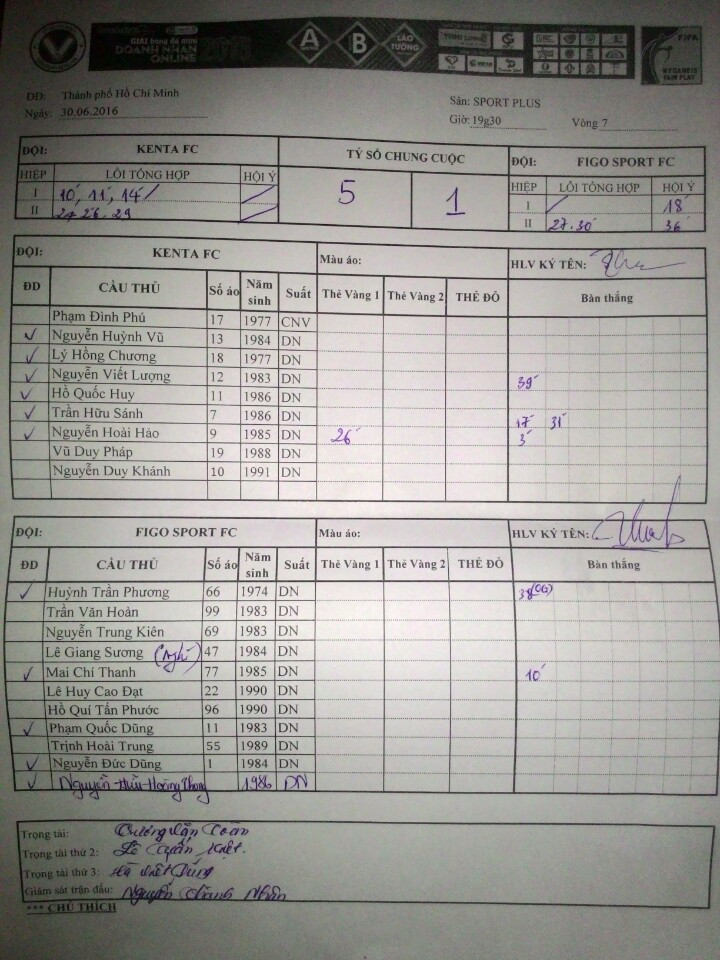 GIẢI bóng đá mini
DOANH NHÂN
ONLINE 2016
A B LÃO TƯỚNG
FIFA
FAIR PLAY
DĐ: Thành phố Hồ Chí Minh
Sân: SPORT PLUS
Ngày: 30.06.2016
Giờ: 19g30 Vòng 7
ĐỘI: KENTA FC TỶ SỐ CHUNG CUỘC ĐỘI: FIGO SPORT FC
HIỆP LỖI TỔNG HỢP HỘI Ý 5 1 HIỆP LỖI TỔNG HỢP HỘI Ý
I 10', 11', 14' / / I / 18'
II 26. 29 / II 27. 30' 36'
ĐỘI: KENTA FC Màu áo: HLV KÝ TÊN:
ĐD CẦU THỦ Số áo Năm sinh Suất Thẻ Vàng 1 Thẻ Vàng 2 THẺ ĐỎ Bàn thắng
Phạm Đình Phú 17 1977 CNV
✓ Nguyễn Huỳnh Vũ 13 1984 DN
✓ Lý Hồng Chương 18 1977 DN
✓ Nguyễn Viết Lượng 12 1983 DN 39'
✓ Hồ Quốc Huy 11 1986 DN
✓ Trần Hữu Sánh 7 1986 DN 17' 31'
✓ Nguyễn Hoài Hảo 9 1985 DN 26' 3'
Vũ Duy Pháp 19 1988 DN
Nguyễn Duy Khánh 10 1991 DN
ĐỘI: FIGO SPORT FC Màu áo: HLV KÝ TÊN:
ĐD CẦU THỦ Số áo Năm sinh Suất Thẻ Vàng 1 Thẻ Vàng 2 THẺ ĐỎ Bàn thắng
✓ Huỳnh Trần Phương 66 1974 DN 38'(OG)
Trần Văn Hoàn 99 1983 DN
Nguyễn Trung Kiên 69 1983 DN
Lê Giang Sương (nghỉ) 47 1984 DN
✓ Mai Chí Thanh 77 1985 DN 10'
Lê Huy Cao Đạt 22 1990 DN
Hồ Quí Tấn Phước 96 1990 DN
✓ Phạm Quốc Dũng 11 1983 DN
Trịnh Hoài Trung 55 1989 DN
✓ Nguyễn Đức Dũng 1 1984 DN
✓ Nguyễn Hữu Hoàng Phong 1986 DN
Trọng tài:
Trọng tài thứ 2: Lê
Trọng tài thứ 3: Hà Việt Dũng
Giám sát trận đấu: Nguyễn Thành Nhân
*** CHÚ THÍCH